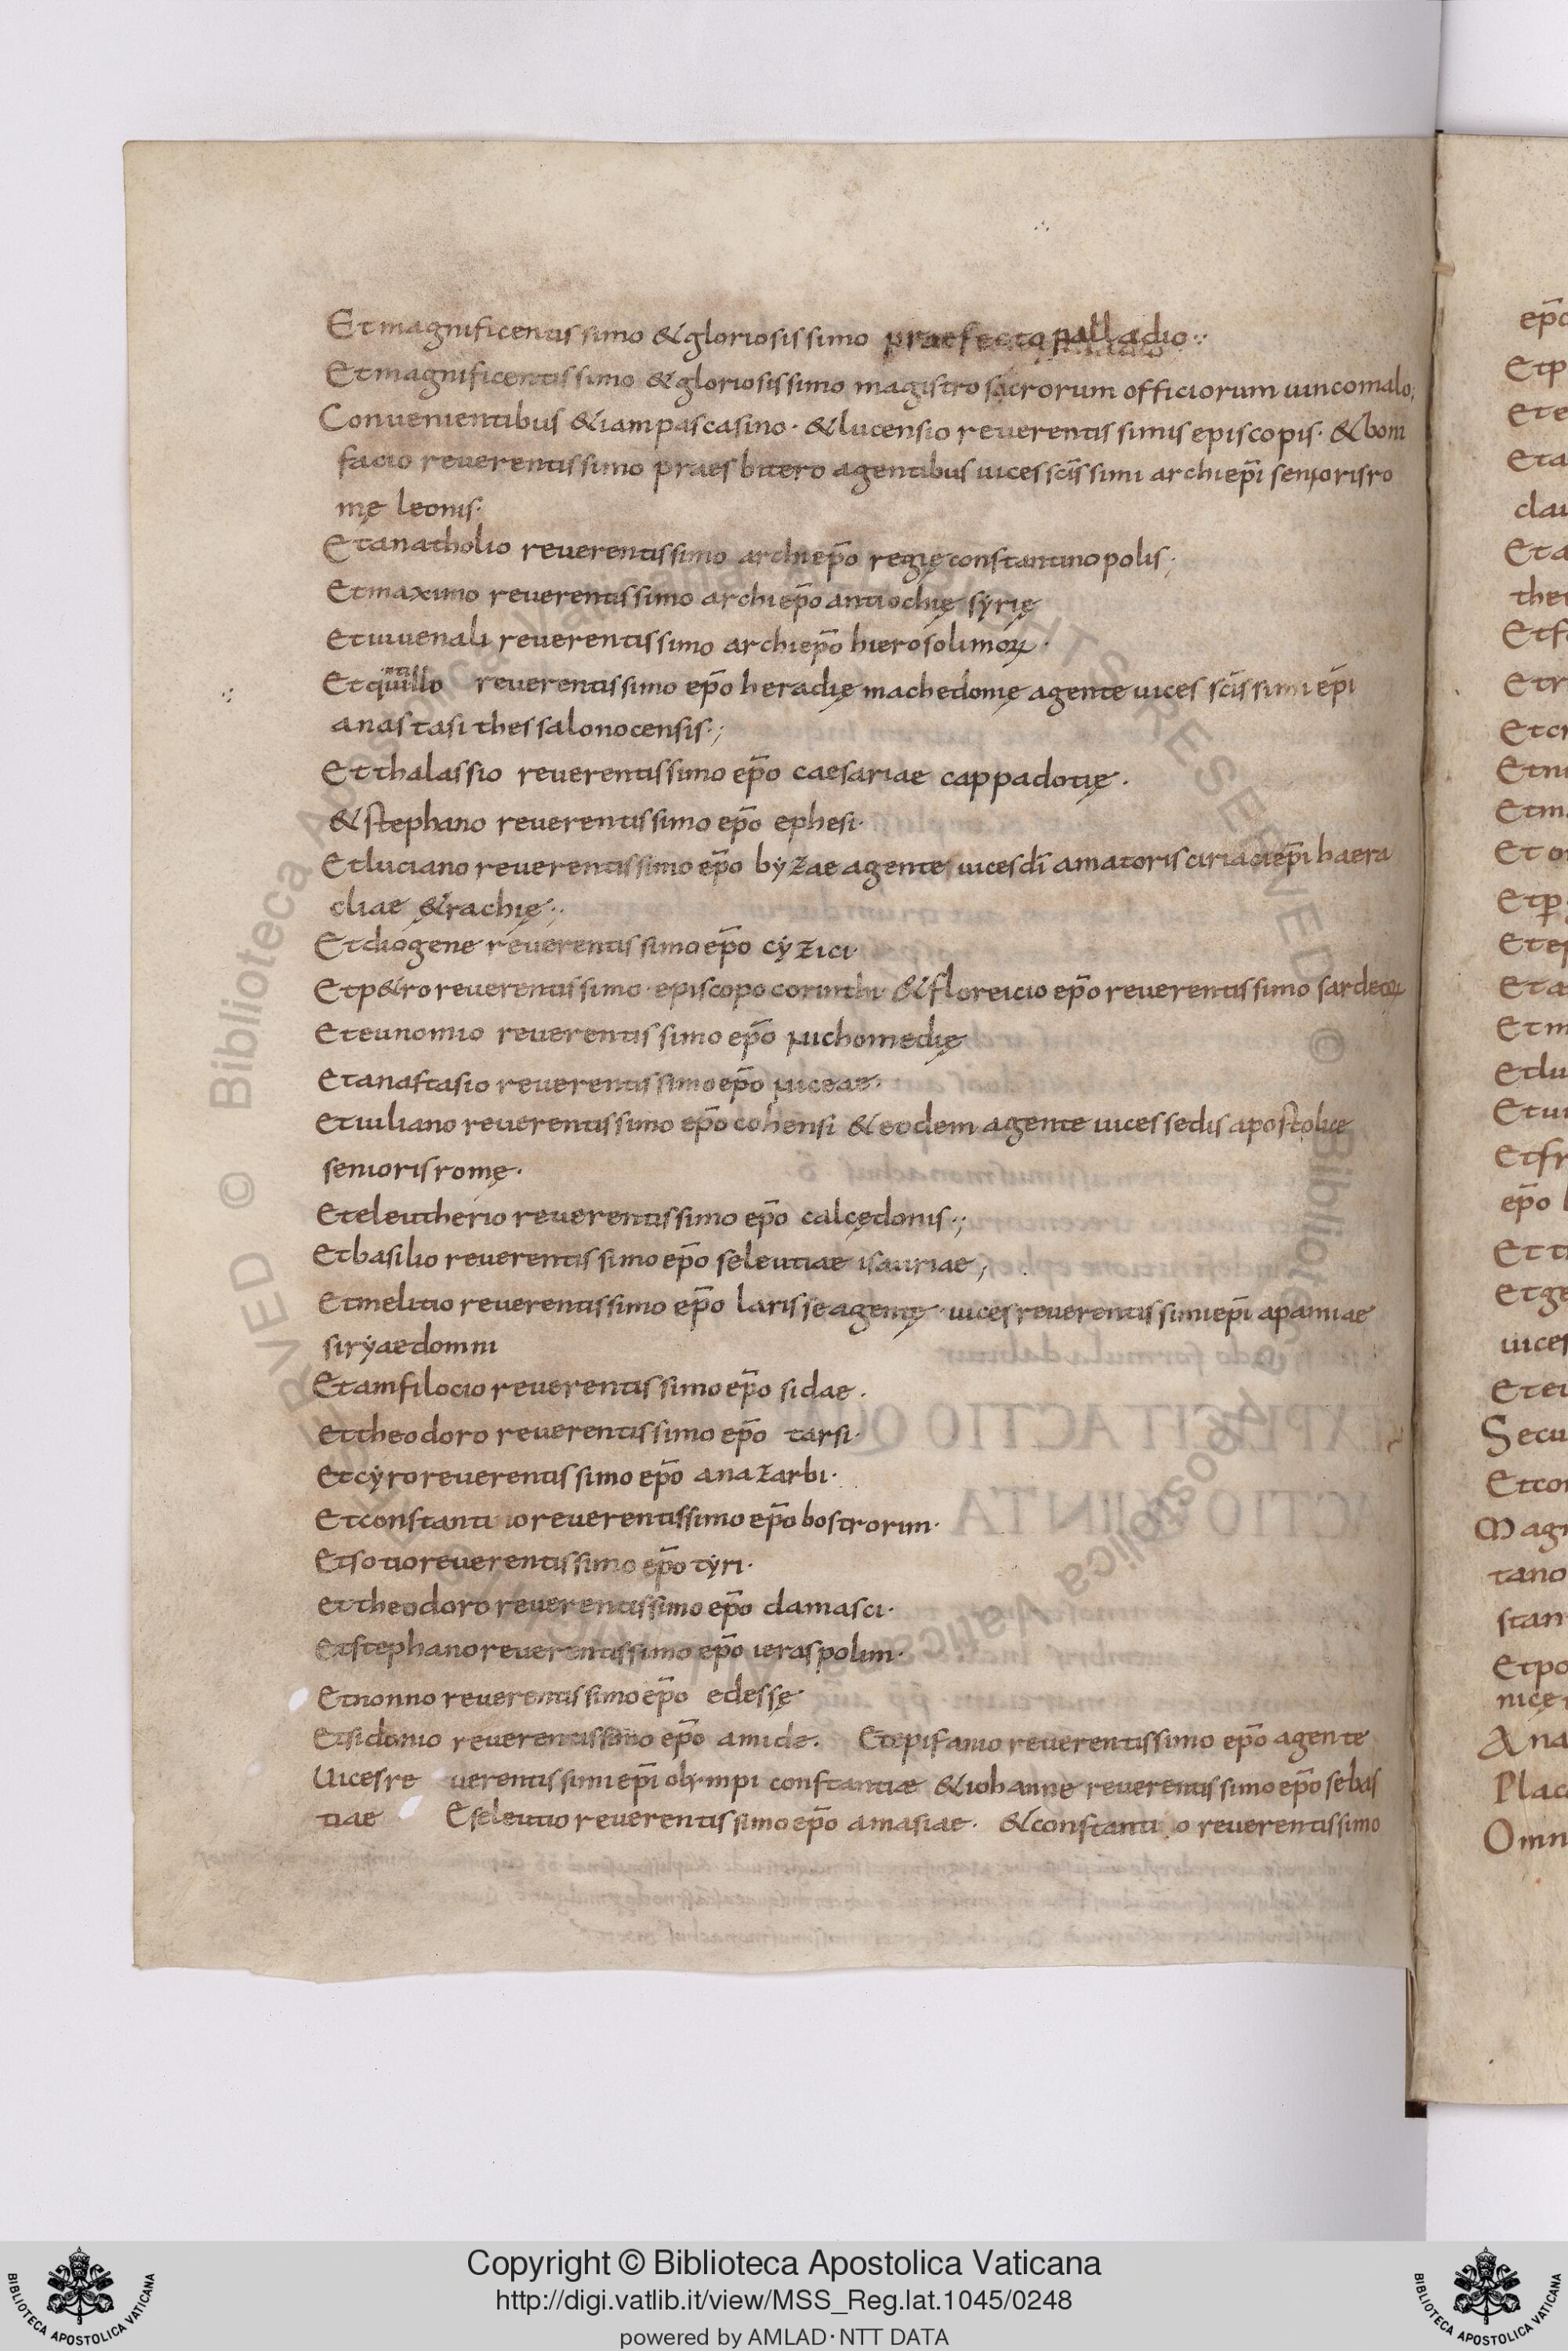 Et magnificentissimo & gloriosissimo praefecto palladio
Et magnificentissimo & gloriosissimo magistro sacrorum officiorum uincomalo;
Conuenientibus & iam pascasino · & lucensio reuerentissimis episcopis · & boni
facio reuerentissimo praesbitero agentibus uices scīssimi archiep̄i senioris ro
mę leonis·
Et anatholio reuerentissimo archiep̄o regię constantinopolis;
Et maximo reuerentissimo archiep̄o antiochię syrię
Et iuuenali reuerentissimo archiep̄o hierosolimoꝝ ·
Et reuerentissimo ep̄o heraclię machedonię agente uices scīssimi ep̄i
anastasi thessalonocensis·;
Et thalassio reuerentissimo ep̄o caesariae cappadotię ·
& stephano reuerentissimo ep̄o ephesi·
Et luciano reuerentissimo ep̄o byzae agente uices dī amatoris ciriaci ep̄i haera
cliae &rachię·;
Et diogene reuerentissimo ep̄o cyzici·
Et p&ro reuerentissimo · episcopo corinthi · & floreicio ep̄o reuerentissimo sardeoꝝ
Et eunomio reuerentissimo ep̄o nichomedię
Et anastasio reuerentissimo ep̄o niceae·
Et iuliano reuerentissimo ep̄o cohensi & eodem agente uices sedis apostolice
senioris romę ·
Et eleutherio reuerentissimo ep̄o calcędonis·;
Et basilio reuerentissimo ep̄o seleutiae isauriae;
Et melitio reuerentissimo ep̄o larisse agentę · uices reuerentissimi ep̄i apamiae
siryae domni
Et amfilocio reuerentissimo ep̄o sidae ·
et theodoro reuerentissimo ep̄o tarsi·
Et cyro reuerentissimo ep̄o anazarbi·
Et constanti io reuerentissimo ep̄o bostrorim·
Et sotio reuerentissimo ep̄o tyri·
et theodoro reuerentissimo ep̄o damasci·
Et stephano reuerentissimo ep̄o ieraspolim·
Et nonno reuerentissimo ep̄o edessę·
Et sidonio reuerentissimo ep̄o amide. Et epifanio reuerentissimo ep̄o agente
Uices re uerentissimi ep̄i olympi constantiæ & iohanne reuerentissimo ep̄o sebas
tiae E seleutio reuerentissimo ep̄o amasiae · & constanti o reuerentissimo
ep̄o
Et p
Et e
Et a
clau
Et a
the
Et f
Et r
Et cr
Et ni
Et m
Et o
Et p
Et e
Et a
Et m
Et lu
Et ui
Et fr
ep̄o
Et t
Et ge
uices
Et eu
Secu
Et con
Magn
tano
stan
Et po
nicę
Ana
Plac
Omn
© Biblioteca Apostolica Vaticana
ALL RIGHTS RESERVED
BIBLIOTECA APOSTOLICA VATICANA
Copyright © Biblioteca Apostolica Vaticana
http://digi.vatlib.it/view/MSS_Reg.lat.1045/0248
powered by AMLAD·NTT DATA
BIBLIOTECA APOSTOLICA VATICANA